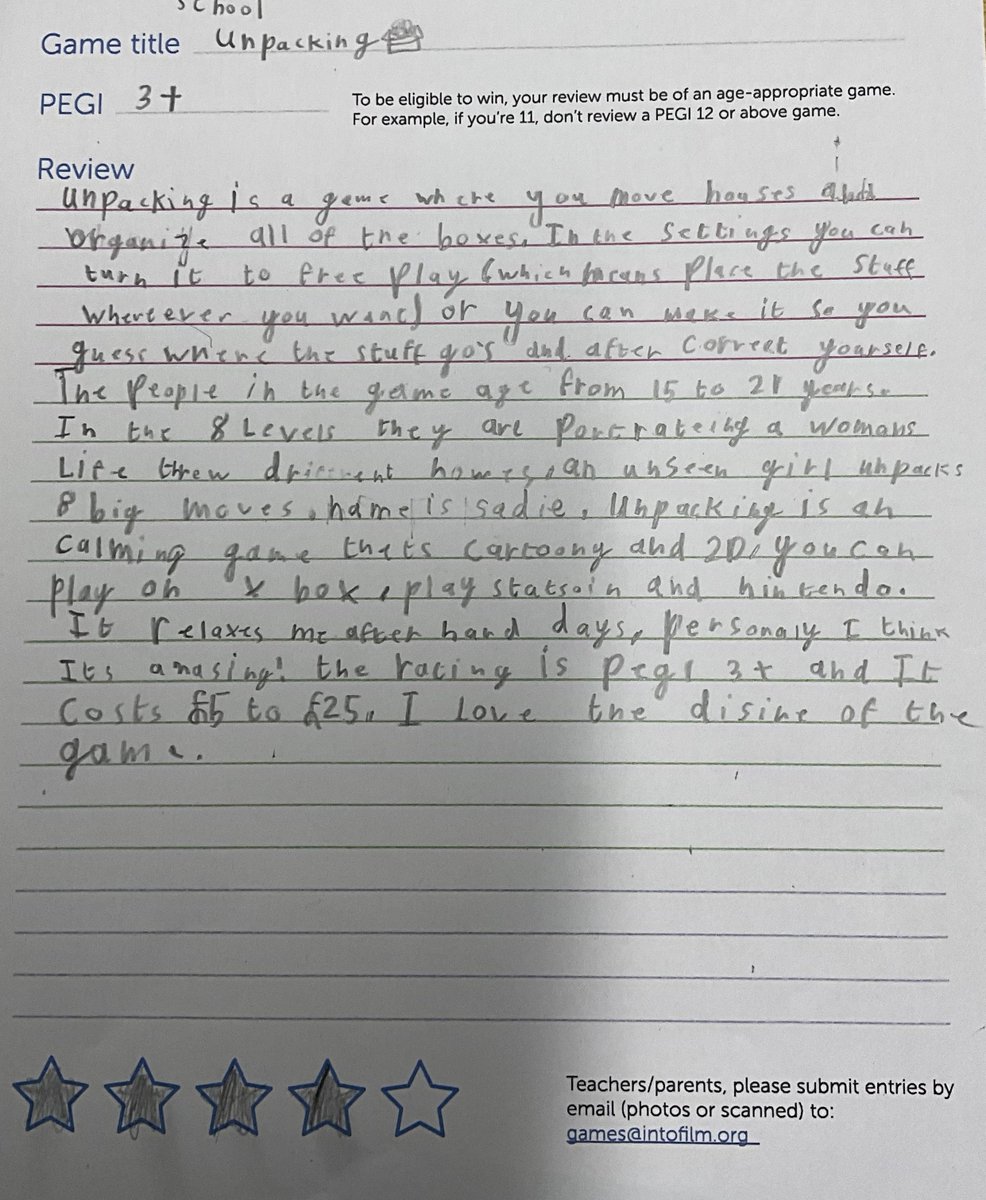 school
Game title Unpacking
PEGI 3+
To be eligible to win, your review must be of an age-appropriate game.
For example, if you're 11, don't review a PEGI 12 or above game.
Review
Unpacking is a game where you move houses and
organize all of the boxes. In the settings you can
turn it to free play (which means place the stuff
wherever you want) or you can make it so you
guess where the stuff go's and after correct yourself.
The people in the game age from 15 to 21 years.
In the 8 Levels they are portrateing a womans
Life threw different homes, an unseen girl unpacks
8 big moves, name is sadie. Unpacking is an
calming game thats cartoony and 2D, you can
play on x box, play statsoin and nintendo.
It relaxes me after hard days, personaly I think
Its amasing! the rating is pegi 3+ and It
costs £5 to £25. I love the disine of the
game.
Teachers/parents, please submit entries by
email (photos or scanned) to:
games@intofilm.org